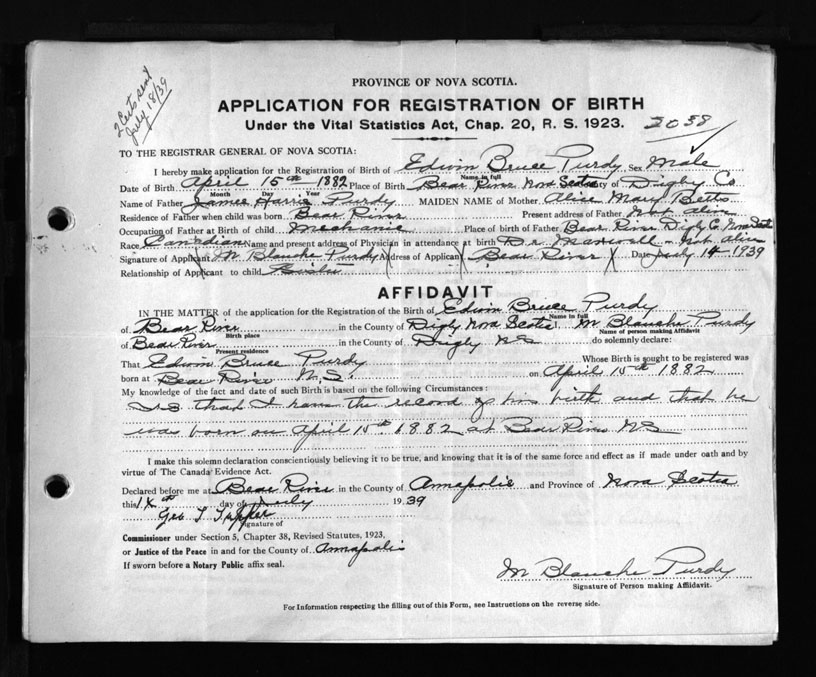 2 Certs sent
July 18/39
PROVINCE OF NOVA SCOTIA.
APPLICATION FOR REGISTRATION OF BIRTH
Under the Vital Statistics Act, Chap. 20, R. S. 1923.
TO THE REGISTRAR GENERAL OF NOVA SCOTIA:
I hereby make application for the Registration of Birth of Edwin Bruce Purdy Sex Male
Name in full
Date of Birth April 15th 1882 Place of Birth Bear River Nova Scotia County of Digby Co
Month Day Year
Name of Father James Harris Purdy MAIDEN NAME of Mother Alice Mary Betts
Residence of Father when child was born Bear River Present address of Father Not alive
Occupation of Father at Birth of child Mechanic Place of birth of Father Bear River Digby Co. Nova Scotia
Race Canadian Name and present address of Physician in attendance at birth Dr. - Not alive
Signature of Applicant M Blanche Purdy Address of Applicant Bear River Date July 14 1939
Relationship of Applicant to child
AFFIDAVIT
IN THE MATTER of the application for the Registration of the Birth of Edwin Bruce Purdy
Name in full
of Bear River in the County of Digby Nova Scotia. M Blanche Purdy
Birth place Name of person making Affidavit
of Bear River in the County of Digby N.S do solemnly declare:
Present residence
That Edwin Bruce Purdy Whose Birth is sought to be registered was
born at Bear River N.S. on April 15th 1882
My knowledge of the fact and date of such Birth is based on the following Circumstances:
Is that I have the record of his birth and that he
was born on April 15th 1882 at Bear River N.S
I make this solemn declaration conscientiously believing it to be true, and knowing that it is of the same force and effect as if made under oath and by
virtue of The Canada Evidence Act.
Declared before me at Bear River in the County of Annapolis and Province of Nova Scotia
this day of July 1939
Geo T Tupper
Signature of
Commissioner under Section 5, Chapter 38, Revised Statutes, 1923,
or Justice of the Peace in and for the County of Annapolis
If sworn before a Notary Public affix seal.
M Blanche Purdy
Signature of Person making Affidavit.
For Information respecting the filling out of this Form, see Instructions on the reverse side.